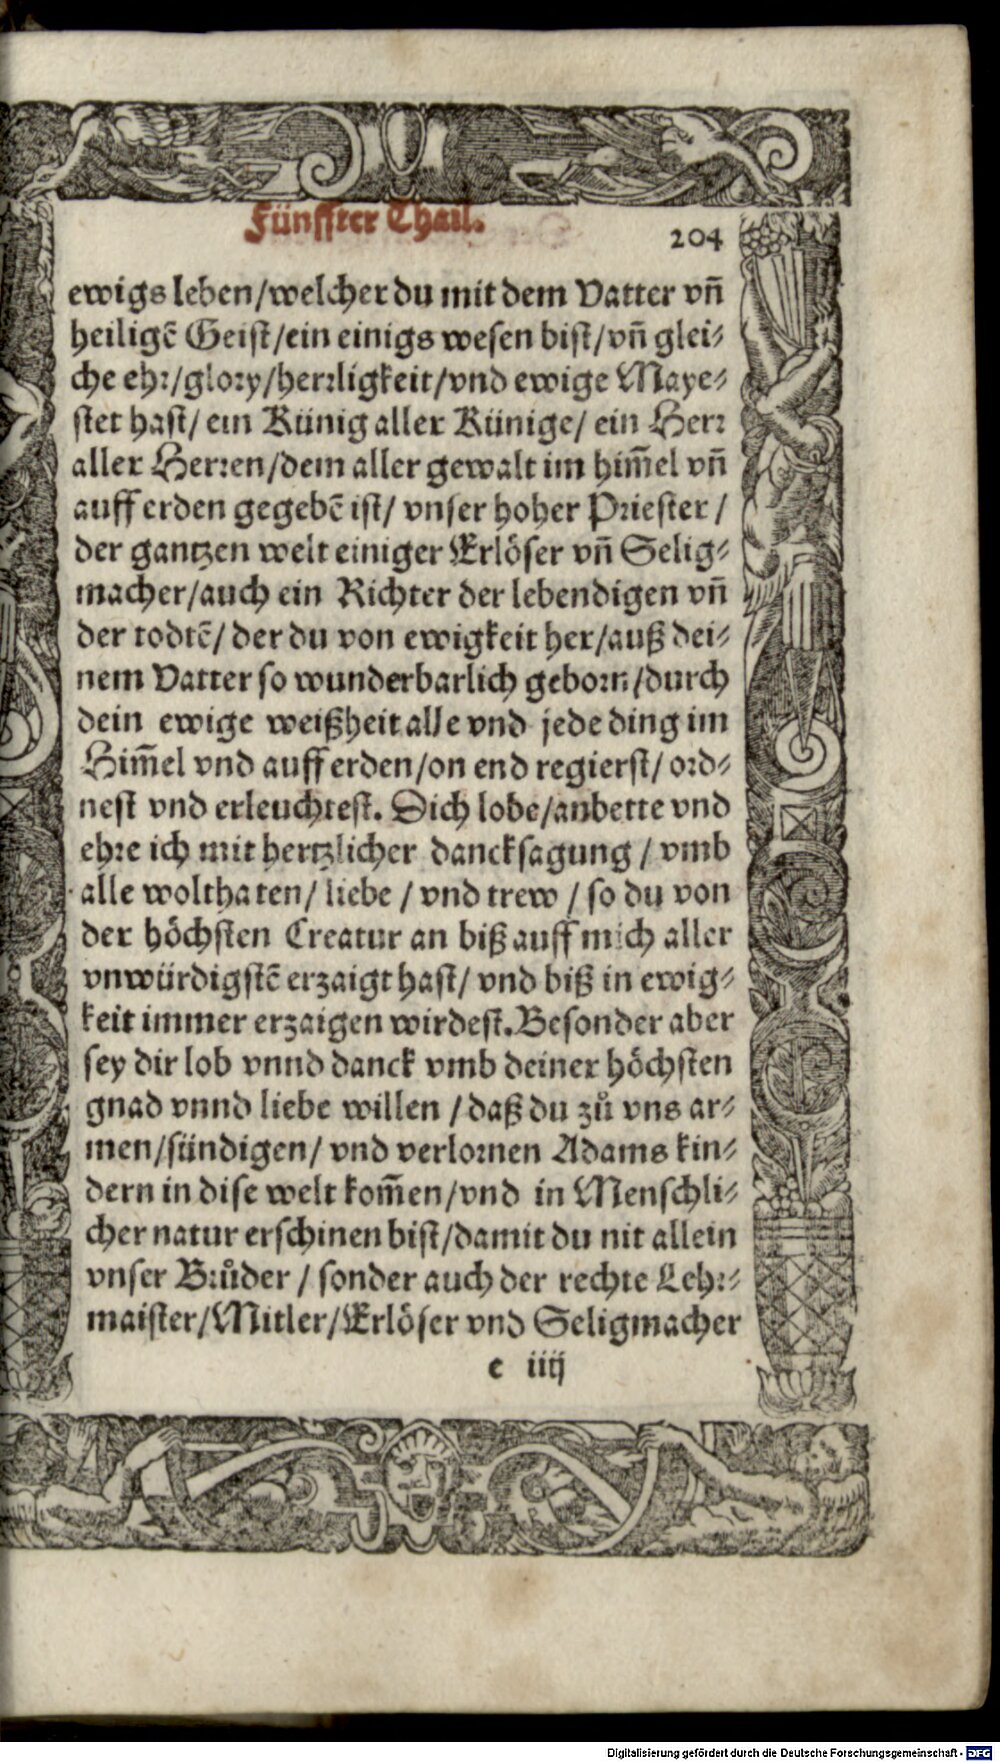 Fünffter Thail.
204
ewigs leben/welcher du mit dem Vatter vn̄
heiligē Geist/ein einigs wesen bist/vn̄ glei-
che ehr/glory/herrligkeit/vnd ewige Maye-
stet hast/ ein Künig aller Künige/ ein Herr
aller Herren/dem aller gewalt im him̄el vn̄
auff erden gegebē ist/ vnser hoher Priester /
der gantzen welt einiger Erlöser vn̄ Selig-
macher/auch ein Richter der lebendigen vn̄
der todtē/ der du von ewigkeit her/auß dei-
nem Vatter so wunderbarlich geborn/durch
dein ewige weißheit alle vnd jede ding im
Him̄el vnd auff erden/on end regierst/ ord-
nest vnd erleuchtest. Dich lobe/anbette vnd
ehre ich mit hertzlicher dancksagung / vmb
alle wolthaten/ liebe / vnd trew / so du von
der höchsten Creatur an biß auff mich aller
vnwürdigstē erzaigt hast/ vnd biß in ewig-
keit immer erzaigen wirdest. Besonder aber
sey dir lob vnnd danck vmb deiner höchsten
gnad vnnd liebe willen / daß du zů vns ar-
men/sündigen/ vnd verlornen Adams kin-
dern in dise welt kom̄en/vnd in Menschli-
cher natur erschinen bist/damit du nit allein
vnser Brůder / sonder auch der rechte Lehr-
maister/Mitler/Erlöser vnd Seligmacher
e iiij
Digitalisierung gefördert durch die Deutsche Forschungsgemeinschaft - DFG